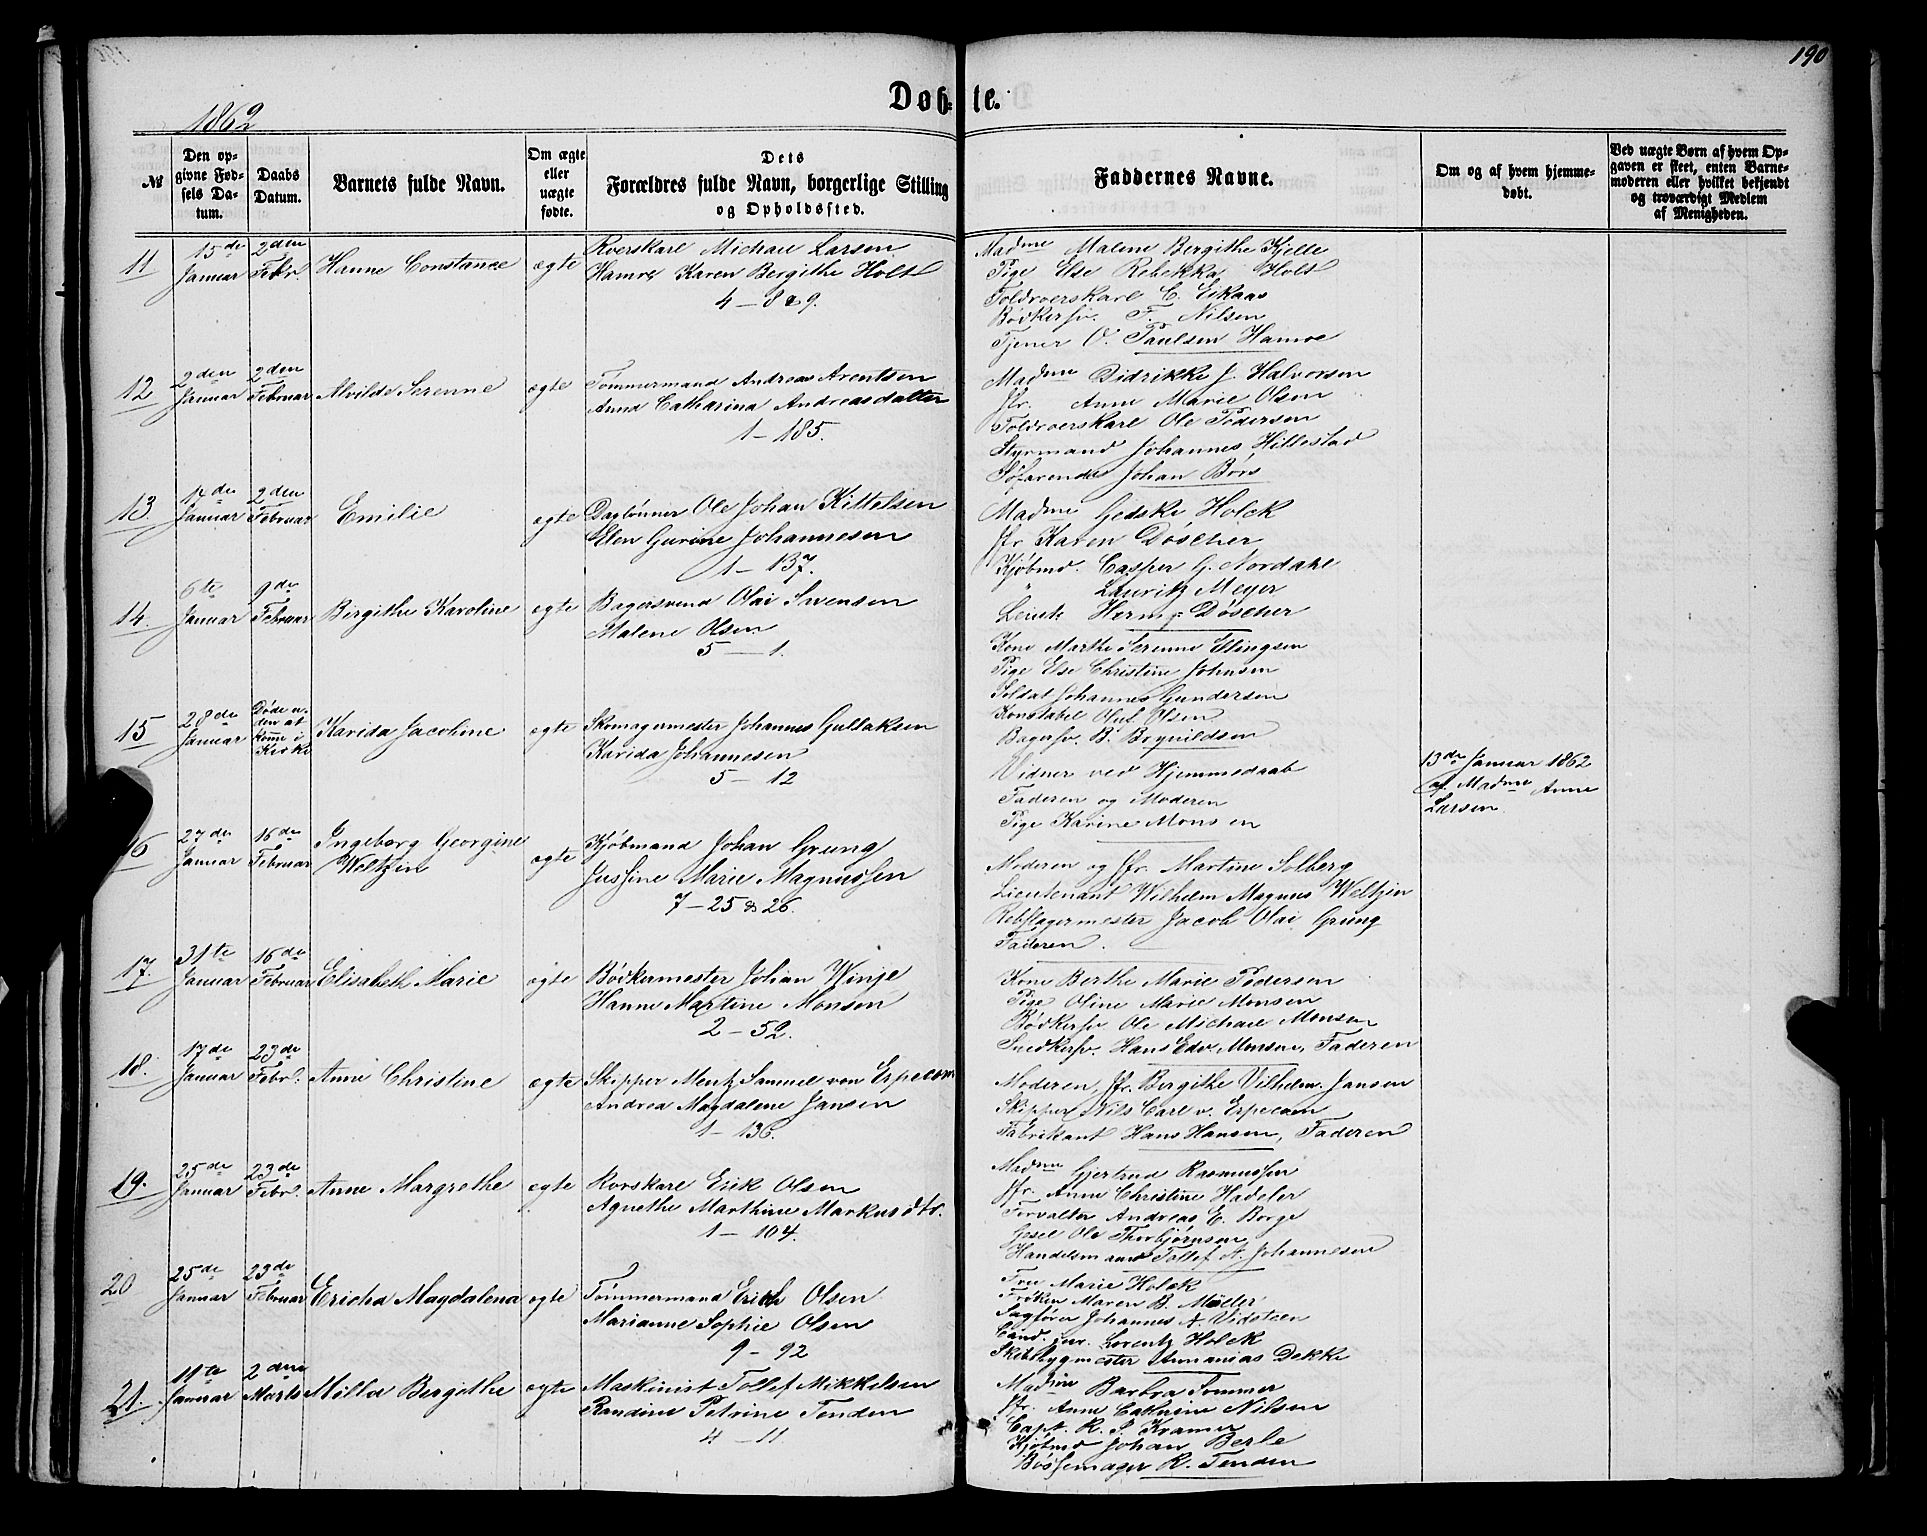 190
Døb- te.
1862
№
Den op-
givne Fød-
sels Da-
tum.
Daabs
Datum.
Barnets fulde Navn.
Om ægte
eller
uægte
fødte.
Dets
Forældres fulde Navn, borgerlige Stilling
og Opholdssted.
Faddernes Navne.
Om og af hvem hjemme-
døbt.
Ved uægte Børn af hvem Op-
gaven er skeet, enten Barne-
moderen eller hvilket bekjendt
og troværdigt Medlem
af Menigheden.
11
15de
Januar
2den
Febr.
Hanne Constance
ægte
Roerskarl Michael Larsen
Hamre Karen Bergithe Holst
4 — 8 & 9.
Madme Malene Bergithe Kjelle
Pige Else Rebekka Holst
Toldroerskarl C. Eikaas
Bødkersv. F. Nilsen
Tjener O. Paulsen Hamre
12
2den
Januar
2den
Februar
Alvilde Serenne
ægte
Tømmermand Andreas Arentsen
Anna Catharina Andreasdatter
1 — 185.
Madme Didrikke J. Halvorsen
Jfr. Anne Marie Olsen
Toldroerskarl Ole Pedersen
Styrmand Johannes Hillestad
Søfarende Johan Bors
13.
14de
Januar
2den
Februar
Emilie
ægte
Daglønner Ole Johan Kittelsen
Elen Gurine Johannesen
1 — 137.
Madme Gedske Holck
Jfr Karen Döscher
Kjøbmd. Casper G. Nordahl
" Lauritz Meyer
Leiut. Herm J. Döscher
14.
6te
Januar
9de
Februar
Bergithe Karoline
ægte
Bagersvend Olai Svensen
Malene Olsen
5 — 1.
Kone Marthe Serenne Ellingsen
Pige Else Christine Johnsen
Soldat Johannes Gundersen
Konstabel Oluf Olsen
Bagersv. B. Brynildsen
15
28de
Januar
Døde u-
den at
komme i
Kirke
Karida Jacobine
ægte
Skomagermester Johannes Gullaksen
Karida Johannesen
5 — 12
Vidner ved Hjemmedaab
Faderen og Moderen
Pige Karine Monsen
13de Januar 1862
af Madme Anne
Larsen
16
27de
Januar
16de
Februar
Ingeborg Georgine
Weltzin
ægte
Kjøbmand Johan Grung
Jussine Marie Magnussen
7 — 25 & 26.
Moderen og Jfr. Martine Solberg
Lieutenant Wilhelm Magnus Weltzin
Rebslagermester Jacob Olai Grung
Faderen.
17.
31te
Januar
16de
Februar
Elisabeth Marie
ægte
Bødkermester Johan Winje
Hanne Martine Monsen
2 — 52.
Kone Berthe Marie Pedersen
Pige Oline Marie Monsen
Bødkersv Ole Michael Monsen
Snedkersv. Hans Edv. Monsen, Faderen
18.
17de
Januar
23de
Febr.
Anne Christine
ægte
Skipper Mentz Samuel von Erpecom
Andrea Magdalene Jansen
1 — 136.
Moderen, Jfr. Bergithe Vilhelm. Jansen
Skipper Nils Carl v. Erpecom
Fabrikant Hans Hansen, Faderen
19.
25de
Januar
23de
Febr.
Anne Margrethe
ægte
Rorskarl Erik Olsen
Agnethe Marthine Markusdtr.
1 — 104.
Madme Gjertrud Rasmussen
Jfr. Anne Christine Hadeler
Forvalter Andreas E. Borge
Gesel Ole Thorbjørnsen
Handelsmand Tollef A. Johannesen
20
25de
Januar
23de
Februar
Ericha Magdalena
ægte
Tømmermand Erich Olsen
Marianne Sophie Olsen
9 — 92
Fru Marie Holck
Frøken Maren B. Møller
Sagfører Johannes A. Vidsteen
Cand. jur. Lorentz Holck
Skibsbygmester Annanias Dekke
21.
19te
Januar
2den
Marts
Milla Bergithe
ægte
Maskinist Tollef Mikkelsen
Randine Petrine Tenden
4 — 11
Madme Barbra Sommer
Jfr. Anne Cathrine Nilsen
Capt. R. S. Kramer
Kjøbmd Johan Berle
Bøssemager R. Tenden